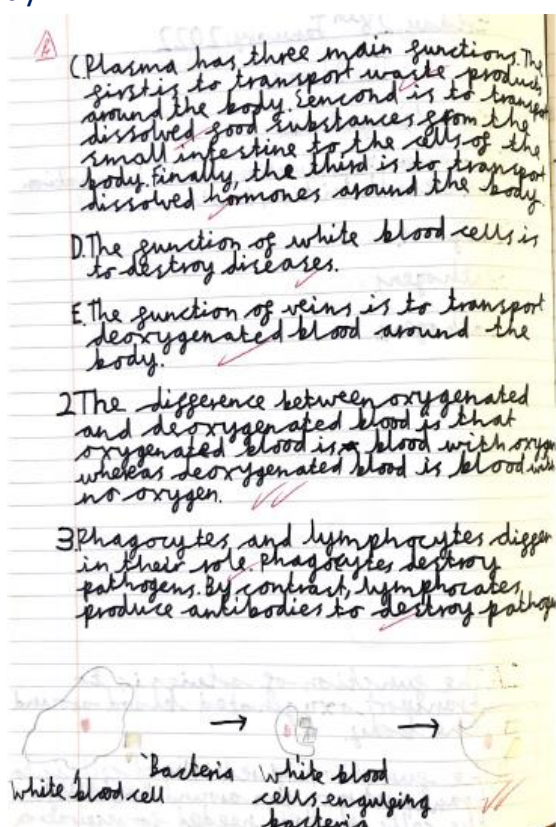 C.Plasma has three main functions.The
first is to transport waste products
around the body. Sencond is to transport
dissolved food substances from the
small intestine to the cells of the
body. Finally, the third is to transport
dissolved hormones around the body.
D.The function of white blood cells is
to destroy diseases.
E.The function of veins is to transport
deoxygenated blood around the
body.
2 The difference between oxygenated
and deoxygenated blood is that
oxygenated blood is blood with oxygen
whereas deoxygenated blood is blood with
no oxygen.
3.Phagocytes and lymphocytes differ
in their role. Phagocytes destroy
pathogens. By contrast, lymphocates
produce antibodies to destroy pathoge
Bacteria
White blood cell
White blood
cells engulfing
bacteria